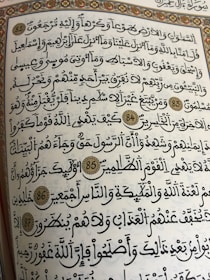 السموات والارض طوعا وكرها وإليه ترجعون 82
قل امنا بالله وما أنزل علينا وما أنزل على إبراهيم وإسماعيل
وإسحق ويعقوب والاسباط وما أوتي موسى وعيسى
والنبيئون من ربهم لا نفرق بين أحد منهم ونحن له
مسلمون 83 ومن يبتغ غير الاسلم دينا فلن يقبل منه وهو
في الاخرة من الخسرين 84 كيف يهدي الله قوما كفروا
إيمنهم وشهدوا أن الرسول حق وجاءهم البينت
يهدي القوم الظلمين 85 أولئك جزاؤهم أن
لعنة الله والملئكة والناس أجمعين 86
يخفف عنهم العذاب ولا هم ينظرون
من بعد ذلك وأصلحوا فإن الله غفور